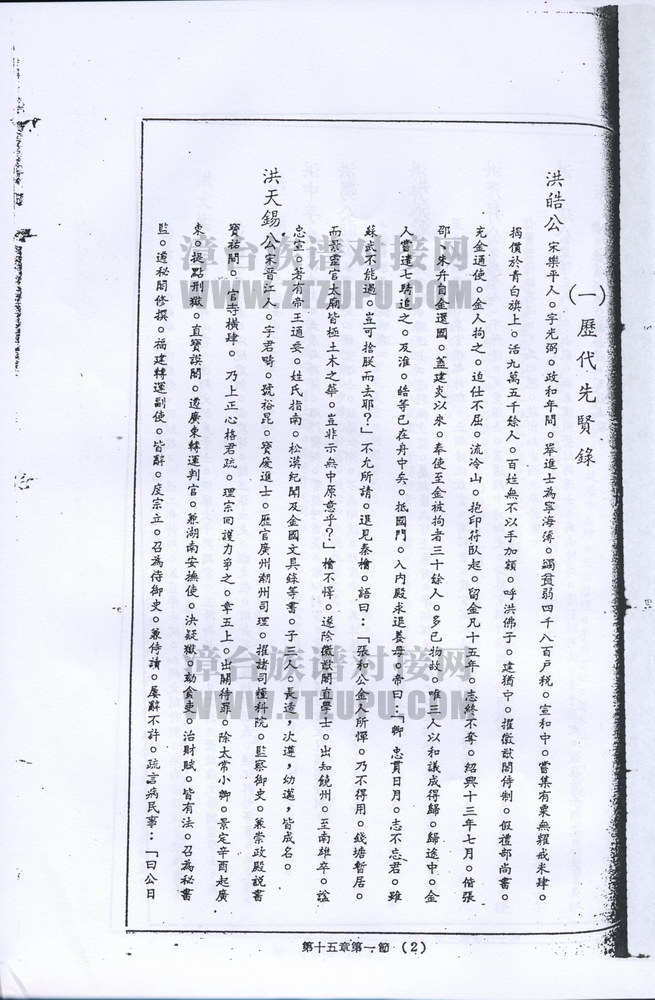 (一)歷代先賢錄
洪皓公宋樂平人。字光弼。政和年間。舉進士為寧海簿。蠲貧弱四千八百戶稅。宣和中。嘗集有粟無糴戒米肆。
揭價於青白旗上。活九萬五千餘人。百姓無不以手加額。呼洪佛子。建炎中。擢徽猷閣待制。假禮部尚書。
充金通使。金人拘之。迫仕不屈。流冷山。抱印符臥起。留金凡十五年。志終不奪。紹興十三年七月。偕張
邵、朱弁自金還國。蓋建炎以來。奉使至金被拘者三十餘人。多已物故。唯三人以和議成得歸。歸途中。金
人嘗遣七騎追之。及淮。皓等已在舟中矣。抵國門。入內殿求退養母。帝曰:「卿 忠貫日月。志不忘君。雖
蘇武不能過。豈可捨朕而去耶?」不允所請。退見秦檜。語曰:「張和公金人所憚。乃不得用。錢塘暫居。
而景靈宮太廟皆極土木之華。豈非示無中原意乎?」檜不懌。遂除徽猷閣直學士。出知饒州。至南雄卒。諡
忠宣。著有帝王通要。姓氏指南。松漠紀聞及金國文具錄等書。子三人。長适,次遵,幼邁,皆成名。
洪天錫公宋晉江人。字君疇。號裕昆。寶慶進士。歷官廣州潮州司理。擢諸司糧科院。監察御史。兼崇政殿說書
寶祐間。宦寺橫肆。乃上正心格君疏。理宗回護力爭之。章五上。出關待罪。除太常小卿。景定辛酉起廣
東。提點刑獄。直寶謨閣。遷廣東轉運判官。兼湖南安撫使。決疑獄。劾貪吏。治財賦。皆有法。召為秘書
監。遷秘閣修撰。福建轉運副使。皆辭。度宗立。召為侍御史。兼侍讀。屢辭不許。疏言病民事:「曰公日
第十五章第一節 (2)
漳台族谱对接网
WWW.ZTZUPU.COM
漳台族谱对接网
WWW.ZTZUPU.COM